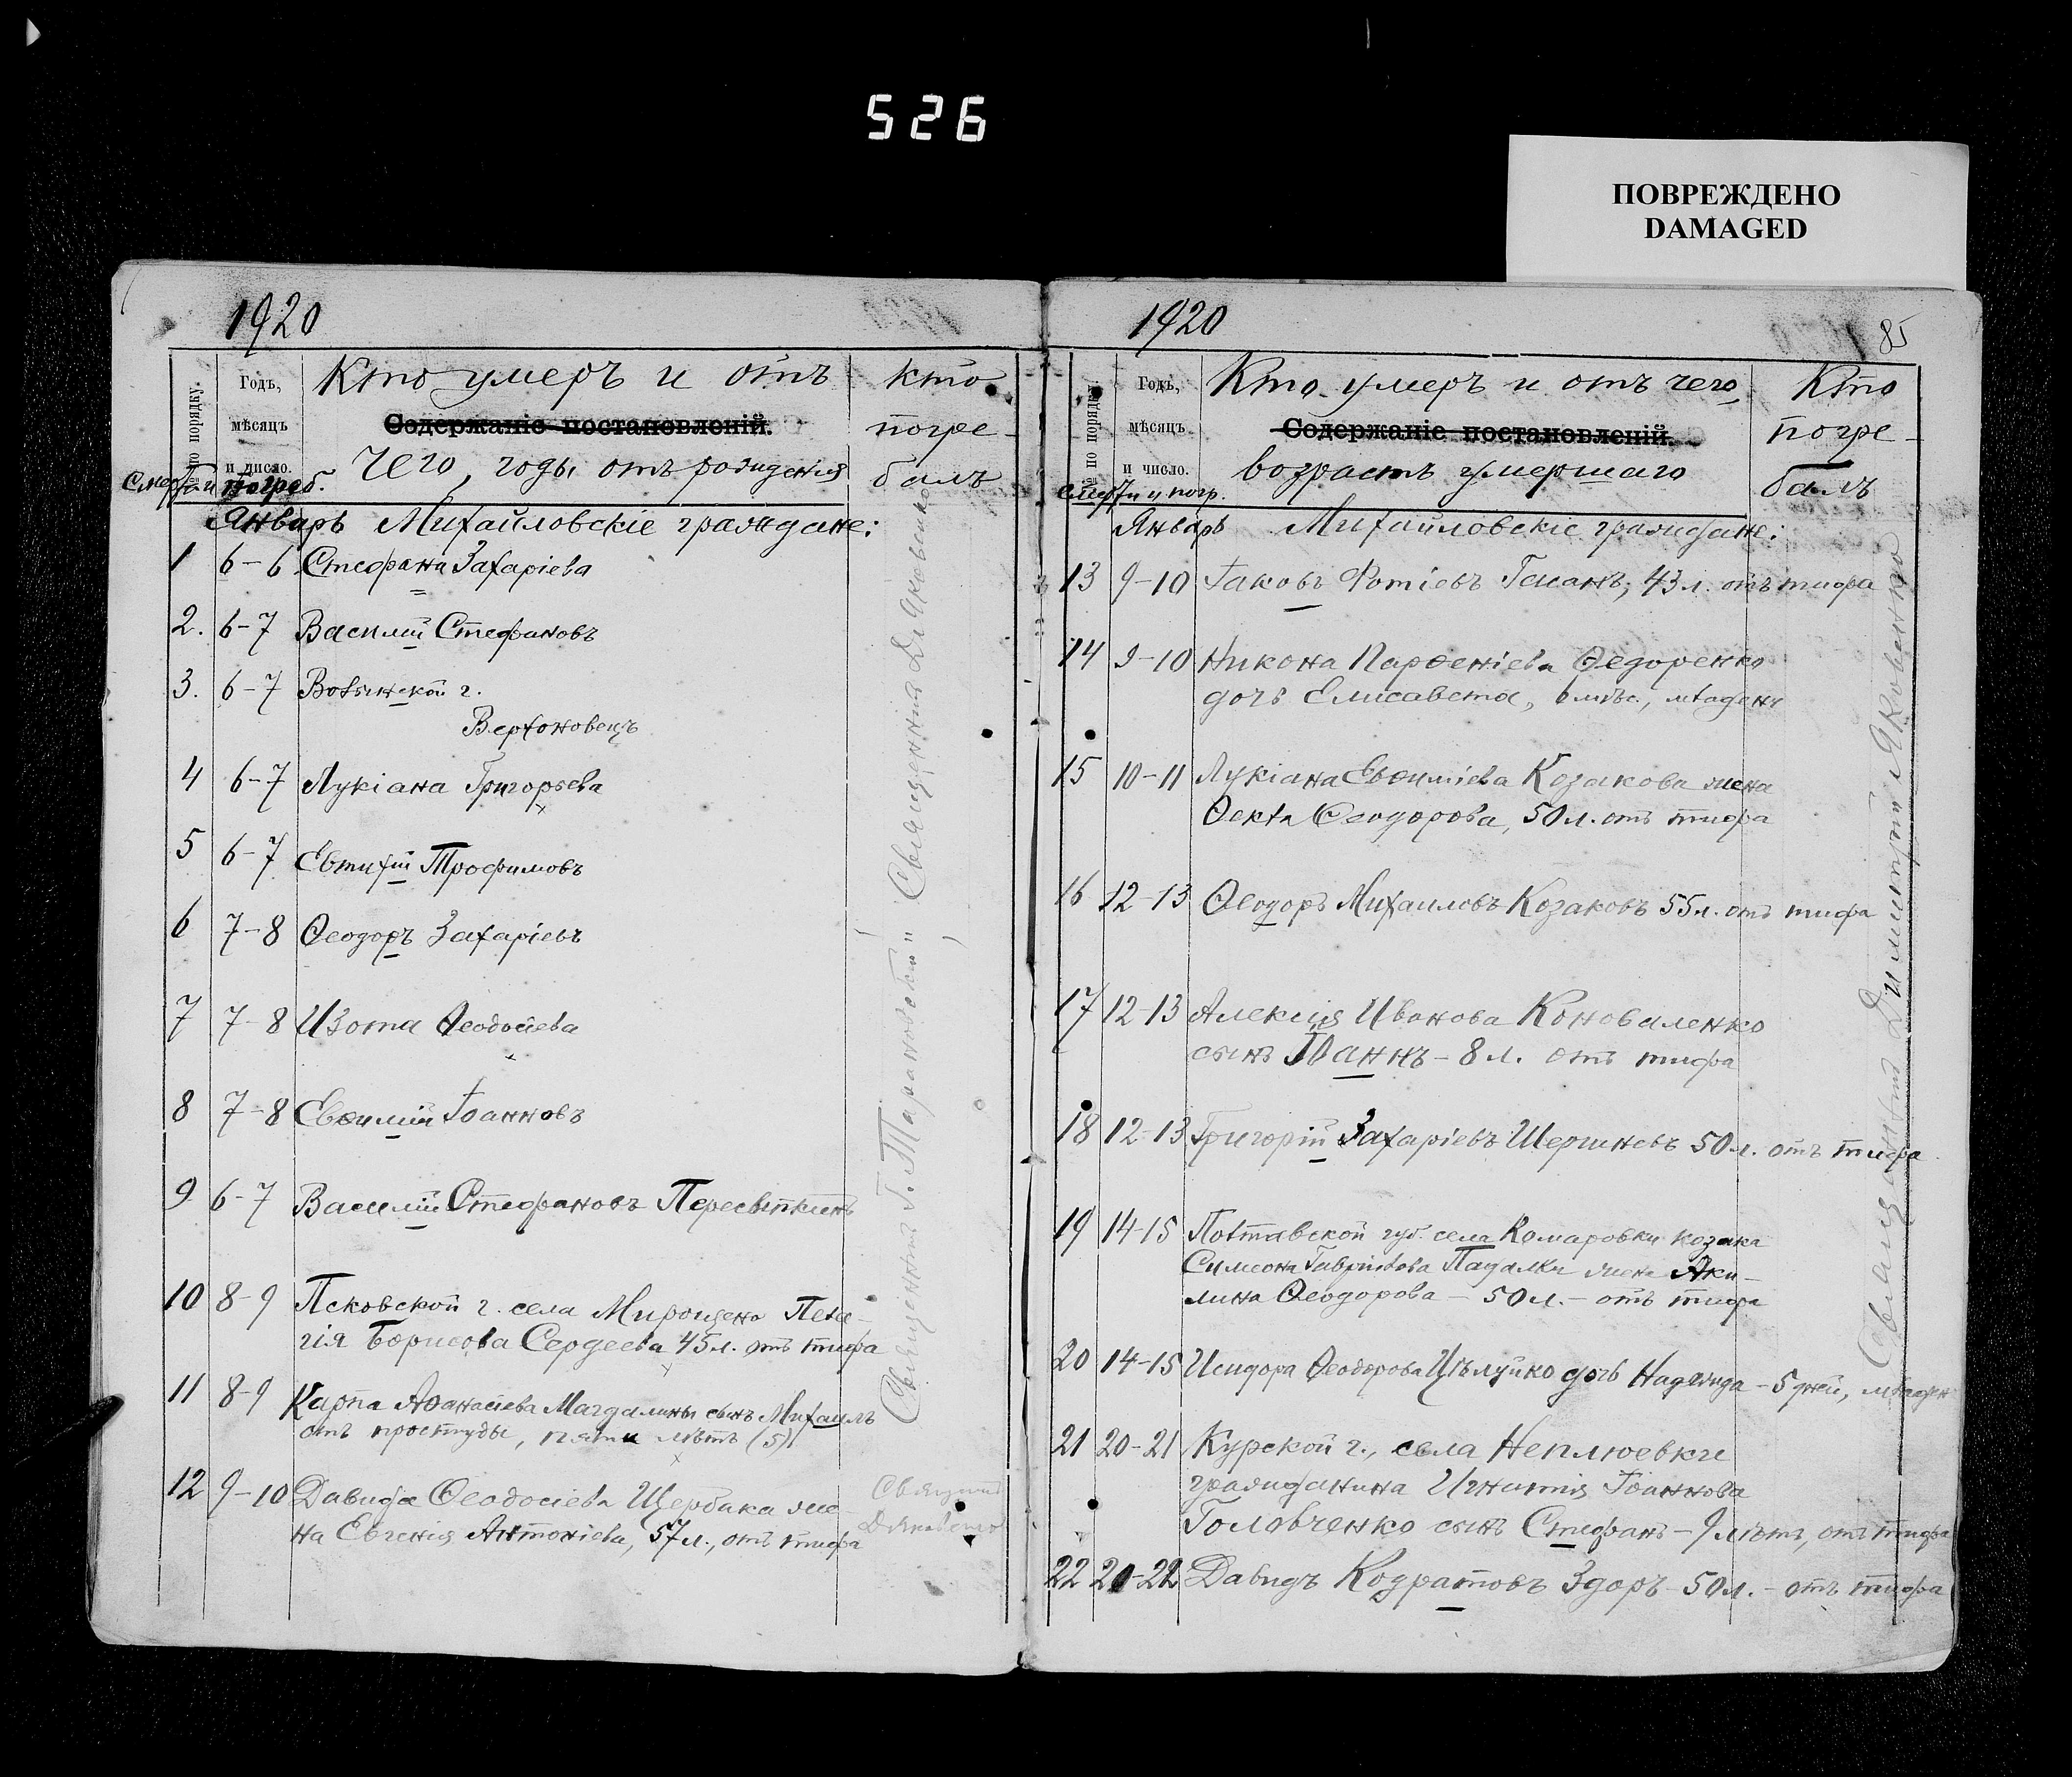 526
ПОВРЕЖДЕНО
DAMAGED
1920
№ по порядку.
Годъ,
мѣсяцъ
и число.
Смерти и погреб.
Кто умеръ и отъ
Содержаніе постановленій.
чего, годы отъ рожденія
кто
погре-
балъ
Январь Михайловскіе граждане:
1 6-6 Стефана Захаріева
2. 6-7 Василій Стефановъ
3. 6-7 Волынской г.
4 6-7 Лукіана Григорьева
5 6-7 Евтихій Трофимовъ
6 7-8 Ѳеодоръ Захаріевъ
7 7-8 Изота Ѳеодосіева
8 7-8 Евѳимій Іоанновъ
9 6-7 Василій Стефановъ Пересыпкинъ
10 8-9 Псковской г. села Пела-
гія Борисова Сергеева 45 л. отъ тифа
11 8-9 Карпа Аѳанасіева Магдалины сынъ Михаилъ
отъ простуды, пяти лѣтъ (5)
12 9-10 Давида Ѳеодосіева Щербака же-
на Евгенія Антоніева, 57 л., отъ тифа
Священникъ Г. Тарановскій и Священникъ Д. Яковенко
1920
85
№ по порядку.
Годъ,
мѣсяцъ
и число.
смерти и погр.
Кто умеръ и отъ чего,
Содержаніе постановленій.
возрастъ умершаго
Кто
погре-
балъ
Январь Михайловскіе граждане:
13 9-10 Іаковъ Фотіевъ 43 л. отъ тифа
14 9-10 Никона Парѳеніева Ѳедоренко
дочь Елисавета, 6 мѣс., младен
15 10-11 Лукіана Евѳиміева Козакова жена
Ѳекла Ѳеодорова, 50 л. отъ тифа
16 12-13 Ѳеодоръ Михаиловъ Козаковъ 55 л. отъ тифа
17 12-13 Алексія Иванова Коноваленко
сынъ Іоаннъ - 8 л. отъ тифа
18 12-13 Григорій Захаріевъ Шершневъ 50 л. отъ тифа
19 14-15 Полтавской губ. села Комаровки козака
Симеона Гавріилова Падалки жена Аки-
лина Ѳеодорова - 50 л. - отъ тифа
20 14-15 Исидора Ѳеодорова Цѣлуйко дочь Надежда - 5 дней, младен
21 20-21 Курской г., села Неплюевки
гражданина Игнатія Іоаннова
Головченко сынъ Стефанъ - 9 лѣтъ, отъ тифа
22 21-22 Давидъ Кодратовъ Здоръ 50 л. - отъ тифа
Священникъ Димитрій Яковенко